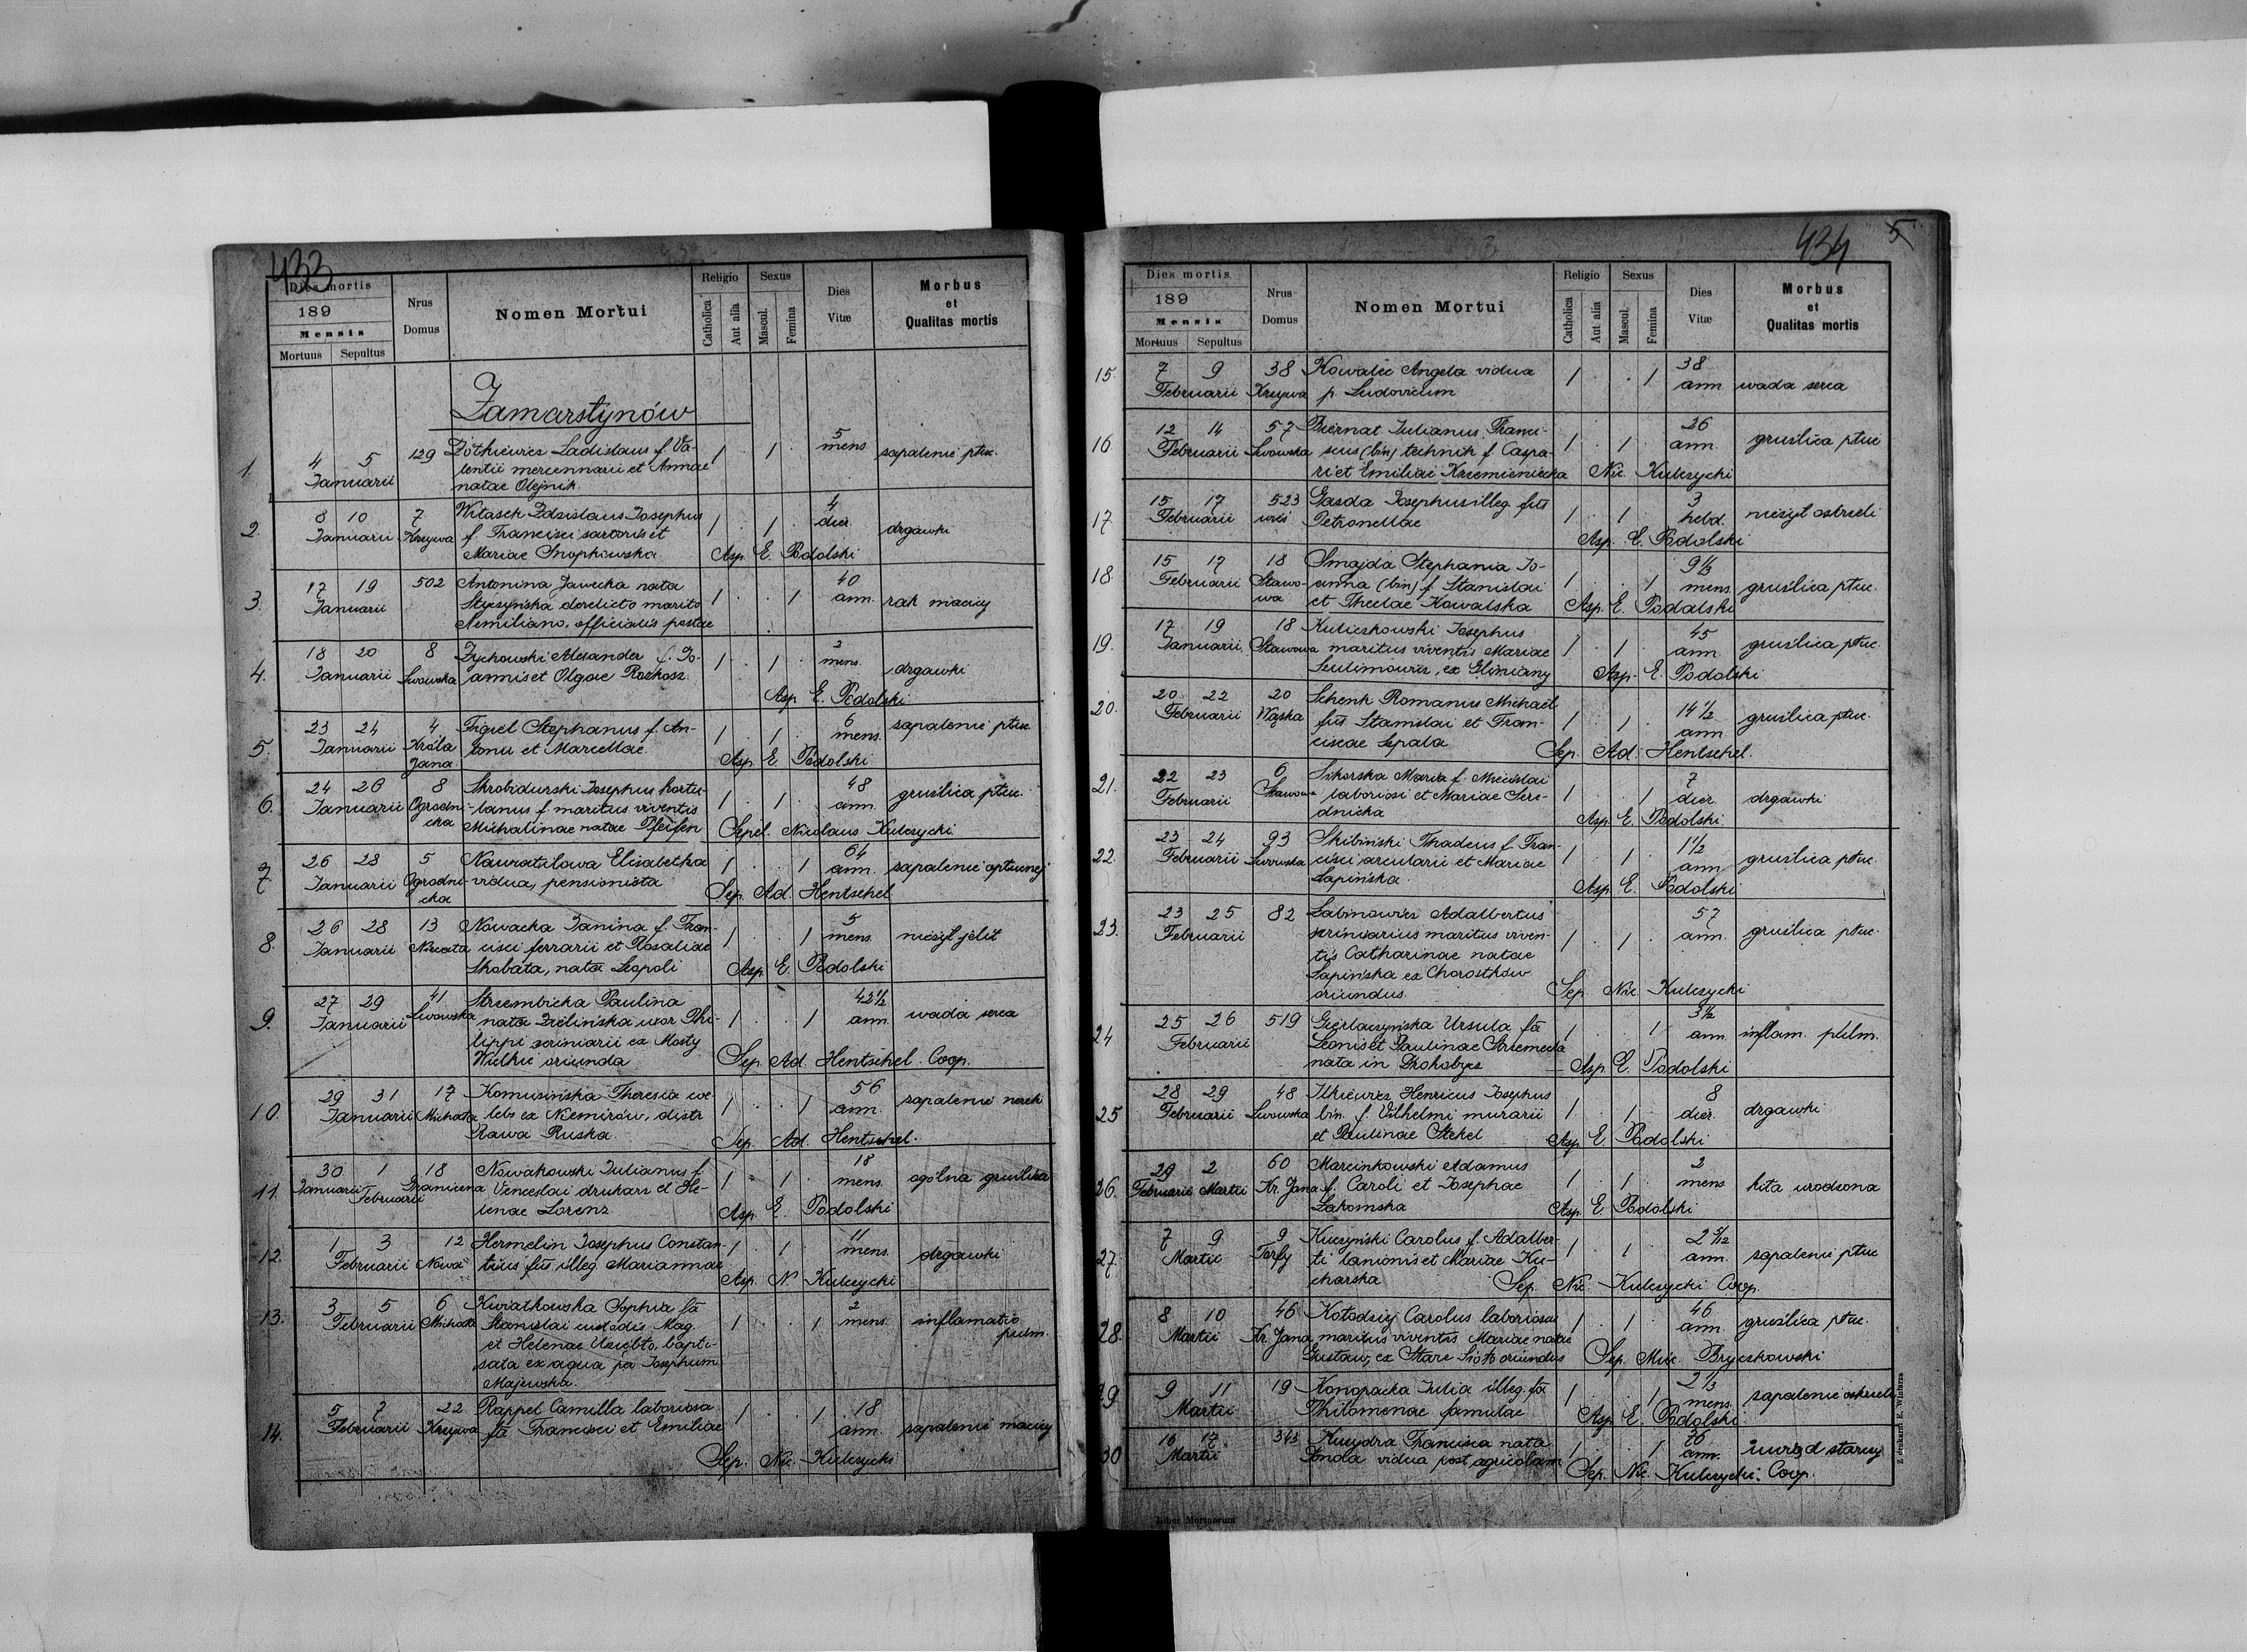 433
Dies mortis
189
Mensis
Mortuus Sepultus
Nrus Domus
Nomen Mortui
Religio
Catholica
Aut alia
Sexus
Mascul.
Femina
Dies Vitæ
Morbus et Qualitas mortis
Zamarstynów
1. 4 5 129 Żółkiewicz Ladislaus f. Va- 1 . 1 . 5 mens. zapalenie płuc.
Januarii lentii mercennarii et Annae
natae Olejnik.
2. 8 10 7 Witasek Zdzislaus Josephus 1 . 1 . 4 dier. drgawki
Januarii Krzywa f. Francisci sartoris et
Mariae Snopkowska. Asp. E. Podolski
3. 17 19 502 Antonina Jawecka nata 1 . . 1 40 ann. rak macicy
Januarii Styczyńska derelicto marito
Aemiliano, officialis postae
4. 18 20 8 Zychowski Alexander f. Jo- 1 . 1 . 2 mens. drgawki
Januarii Lwowska annis et Olgae Rozkosz.
Asp. E. Podolski
5. 23 24 4 Figiel Stephanus f. An- 1 . 1 . 6 mens. zapalenie płuc
Januarii Króla Jana tonii et Marcellae. Asp. E. Podolski
6. 24 26 8 Skrobidurski Josephus hortu- 1 . 1 . 48 ann. gruźlica płuc.
Januarii Ogrodni- lanus f. maritus viventis
cka Michalinae natae Pfeifen Sepel. Nicolaus Kulczycki
7. 26 28 5 Nawratilowa Elisabetha 1 . . 1 64 ann. zapalenie opłucnej
Januarii Ogrodni- vidua, pensionista
cka Sep. Ad. Hentschel
8. 26 28 13 Nowacka Janina f. Fran- 1 . . 1 5 mens. nieżyt jelit
Januarii cisci ferrarii et Rosaliae
Skobata, nata Leopoli Asp. E. Podolski
9. 27 29 41 Strzembicka Paulina 1 . . 1 42½ ann. wada serca
Januarii Lwowska nata Zielińska uxor Phi-
lippi scriniarii ex Mosty
Wielkie oriunda Sep. Ad. Hentschel Coop.
10. 29 31 17 Komusińska Theresia coe- 1 . . 1 56 ann. zapalenie nerek
Januarii Michała lebs ex Niemirów, distr
Rawa Ruska. Sep. Ad. Hentschel.
11. 30 1 18 Nowakowski Julianus f. 1 . 1 . 18 mens. ogólna gruźlica
Januarii Februarii Graniczna Venceslai drukarz et He-
lenae Lorenz. Asp. E. Podolski
12. 1 3 12 Hermelin Josephus Constan- 1 . 1 . 11 mens. drgawki
Februarii Nowa tius fils illeg. Mariannae
Asp. N. Kulczycki
13. 3 5 6 Kwiatkowska Sophia fa 1 . . 1 2 mens. inflamatio pulm.
Februarii Michała Stanislai custodis Mag.
et Helenae bapti-
sata ex aqua per Josephum
Majewska.
14. 5 7 22 Rappel Camilla laboriosa 1 . . 1 18 ann. zapalenie macicy
Februarii Krzywa fa Francisci et Emiliae
Sep. Nic. Kulczycki
434
5
Dies mortis
189
Mensis
Mortuus Sepultus
Nrus Domus
Nomen Mortui
Religio
Catholica
Aut alia
Sexus
Mascul.
Femina
Dies Vitæ
Morbus et Qualitas mortis
15. 7 9 38 Kowalec Angela vidua 1 . . 1 38 ann wada serca
Februarii Krzywa p. Ludovicum
16 12 14 57 Biernat Julianus Franci- 1 . 1 . 26 ann. gruźlica płuc
Februarii Lwowska scus (bin) technik f. Caspa-
ri et Emiliae Krzemieniecka Nic. Kulczycki
17 15 17 523 Gazda Josephus illeg. fils 1 . 1 . 3 hebd. nieżyt oskrzeli
Februarii Petronellae Asp. E. Podolski
18. 15 17 18 Smajda Stephania Jo- 1 . . 1 9⅓ mens. gruźlica płuc.
Februarii Stawo- anna (bin) f. Stanislai
wa et Theclae Kowalska Asp. E. Podolski
19. 17 19 18 Kuliczkowski Josephus 1 . 1 . 45 ann. gruźlica płuc
Januarii Stawowa maritus viventis Mariae
Szulimowicz, ex Gliniany Asp. E. Podolski
20. 20 22 20 Schenk Romanus Michael 1 . 1 . 14½ ann gruźlica płuc.
Februarii Wąska fils Stanislai et Fran-
ciscae Sepala Sep. Ad. Hentschel.
21. 22 23 6 Sikorska Maria f. Miecislai 1 . . 1 7 dier. drgawki
Februarii Stawowa laboriosi et Mariae Sere-
dnicka Asp. E. Podolski
22. 23 24 93 Skibiński Thadeus f. Fran- 1 . 1 . 1½ ann gruźlica płuc.
Februarii Lwowska cisci arcularii et Mariae
Łapińska. Asp. E. Podolski
23. 23 25 82 Labinowicz Adalbertus 1 . 1 . 57 ann. gruźlica płuc.
Februarii scriniarius maritus viven-
tis Catharinae natae
Łapińska ex Chorostków
oriundus. Sep. Nic. Kulczycki
24 25 26 519 Gierlaczyńska Ursula fa 1 . . 1 3½ ann inflam. pulm.
Februarii Leonis et Paulinae Strzemecka
nata in Drohobycz Asp. E. Podolski
25 28 29 48 Ilkiewicz Henricus Josephus 1 . 1 . 8 dier. drgawki
Februarii Lwowska bin. f. Vilhelmi murarii
et Paulinae Stekel Asp. E. Podolski
26. 29 2 60 Marcinkowski Adamus 1 . 1 2 mens kiła wrodzona
Februarii Martii Kr. Jana f. Caroli et Josephae
Łakomska Asp. E. Podolski
27. 7 9 9 Kuczyński Carolus f. Adalber- 1 . 1 2 5/12 ann. zapalenie płuc
Martii Torfy ti lanionis et Mariae Ku-
charska Sep. Nic. Kulczycki Coop.
28. 8 10 46 Kołodziej Carolus laboriosus 1 . 1 . 46 ann. gruźlica płuc.
Martii Kr. Jana maritus viventis Mariae natae
Gustaw, ex Stare Sioło oriundus Sep. Mic. Bryczkowski
29 9 11 19 Konopacka Julia illeg. fa 1 . . 1 2⅓ mens. zapalenie oskrzeli
Martii Philomenae famulae Asp. E. Podolski
30 16 17 343 Kuczydra Francisca nata 1 . . 1 76 ann. uwiąd starczy
Martii vidua post agricolam Sep. Nic. Kulczycki. Coop.
Liber Mortuorum
Z drukarni E. Winiarza